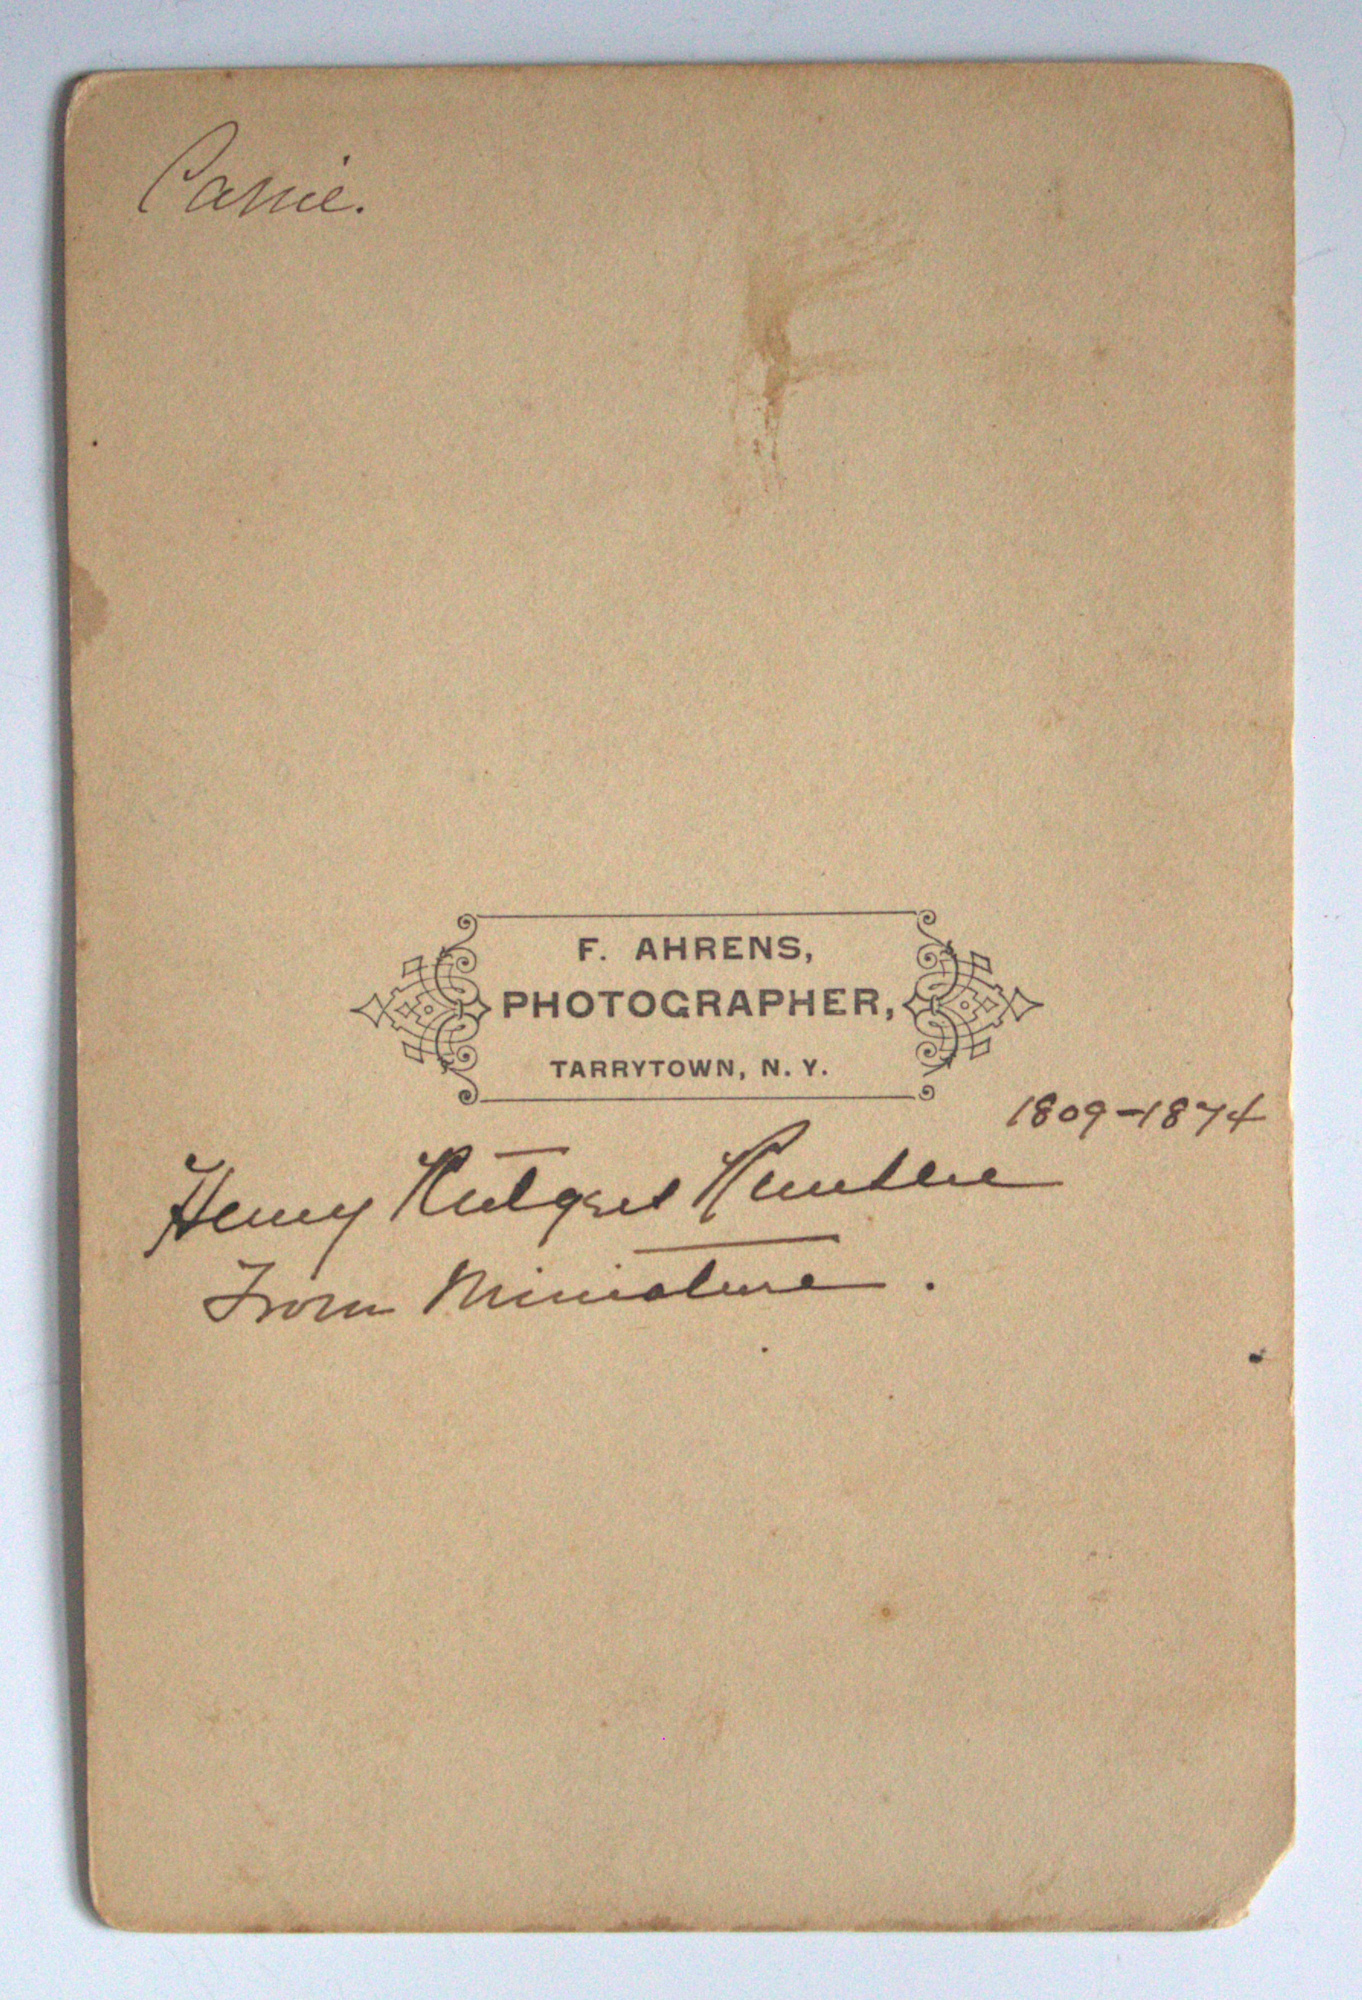 Carrie.
F. AHRENS,
PHOTOGRAPHER,
TARRYTOWN, N. Y.
1809-1874
Henry Rutgers Remsen
From Miniature.